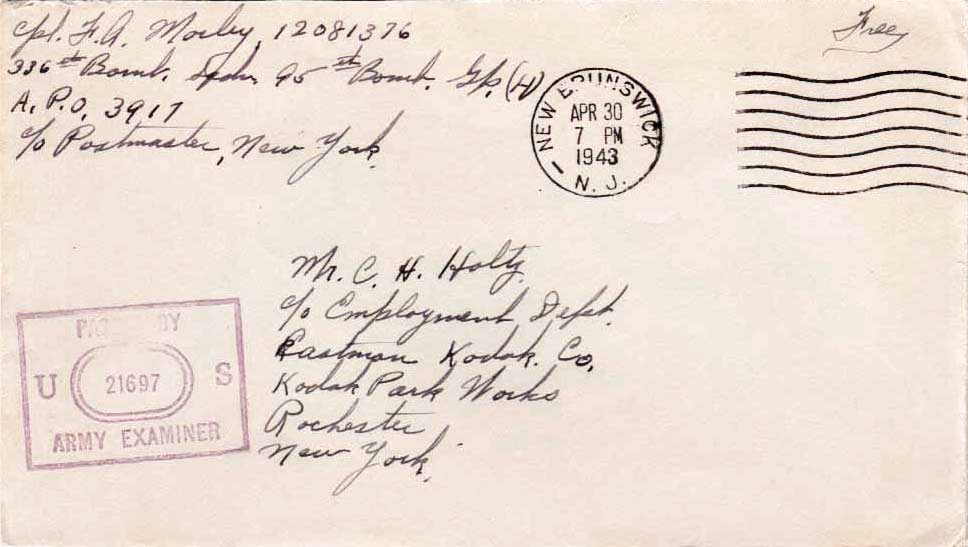 Cpl. F.A. Morley, 12081376
336th Bomb. Sqdn. 95th Bomb. Gp. (H)
A.P.O. 3917
c/o Postmaster, New York.
Free
NEW BRUNSWICK
APR 30
7 PM
1943
N. J.
Mr. C. H. Holtz
c/o Employment Dept.
Eastman Kodak. Co.
Kodak Park Works
Rochester
New York.
PASSED BY
U 21697 S
ARMY EXAMINER